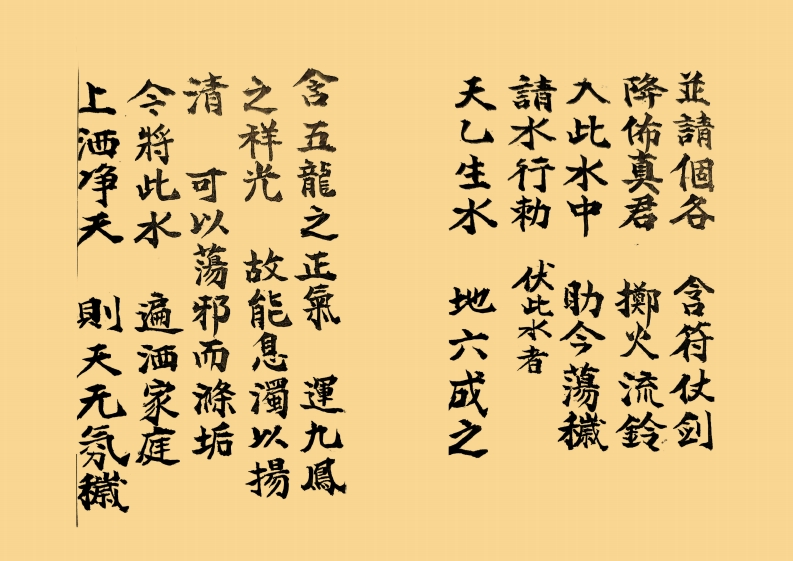 並請個各　含符仗剑
降佈真君　擲火流鈴
入此水中　助今蕩穢
請水行勅　伏此水者
天乙生水　地六成之
含五龍之正氣　運九鳳
之祥光　故能息濁以揚
清　可以蕩邪而滌垢
今將此水　遍洒家庭
上洒净天　則天无氛穢